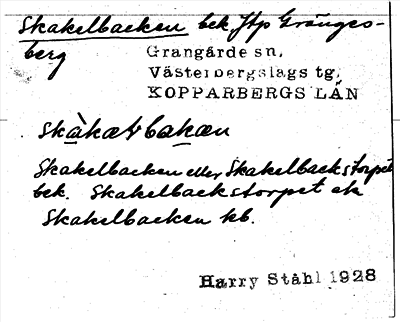 Skakelbacken bek. Jtp Gränges-
berg
Grangärde sn,
Västerbergslags tg,
KOPPARBERGS LÄN
skàkæɫbakæn
Skakelbacken eller Skakelbackstorpet
bek. Skakelbackstorpet ek
Skakelbacken kb.
Harry Ståhl 1928